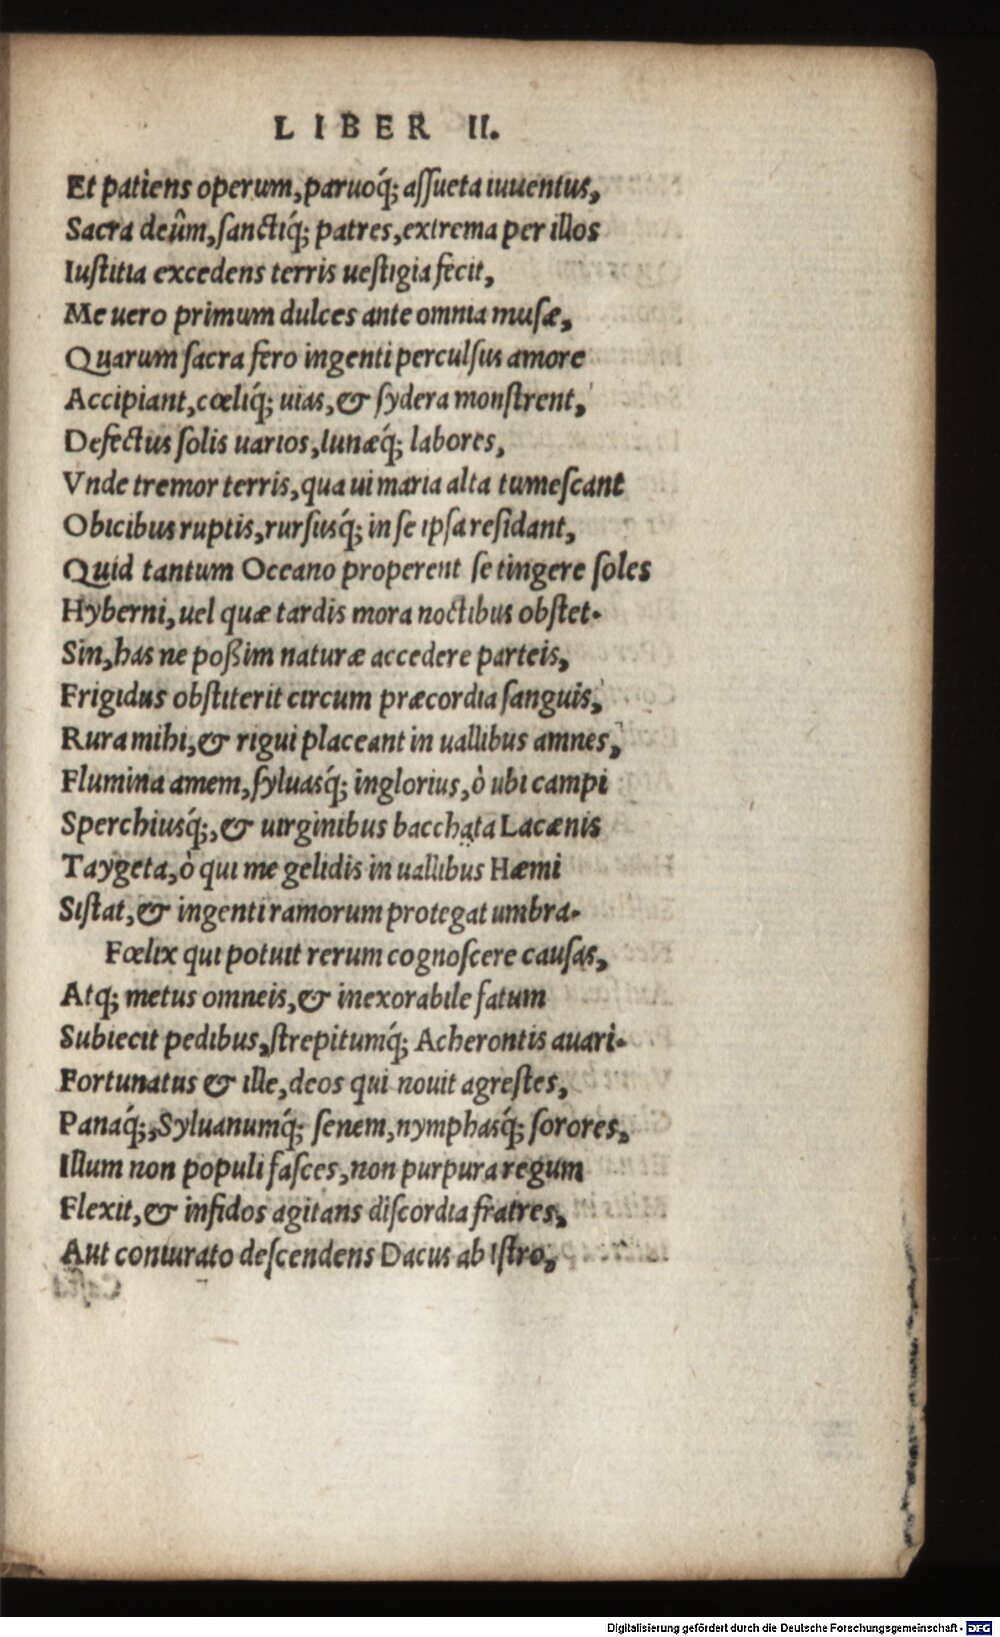 LIBER II.
Et patiens operum, paruoq́; aſſueta iuuentus,
Sacra deûm, ſanctiq́; patres, extrema per illos
Iuſtitia excedens terris ueſtigia fecit,
Me uero primum dulces ante omnia muſæ,
Quarum ſacra fero ingenti perculſus amore
Accipiant, cœliq́; uias, & ſydera monſtrent,
Defectus ſolis uarios, lunæq́; labores,
Vnde tremor terris, qua ui maria alta tumeſcant
Obicibus ruptis, rurſusq́; in ſe ipſa reſidant,
Quid tantum Oceano properent ſe tingere ſoles
Hyberni, uel quæ tardis mora noctibus obſtet.
Sin, has ne poßim naturæ accedere parteis,
Frigidus obſtiterit circum præcordia ſanguis,
Rura mihi, & rigui placeant in uallibus amnes,
Flumina amem, ſyluasq́; inglorius, ò ubi campi
Sperchiusq́;, & uirginibus bacchata Lacænis
Taygeta, ò qui me gelidis in uallibus Hæmi
Siſtat, & ingenti ramorum protegat umbra.
Fœlix qui potuit rerum cognoſcere cauſas,
Atq; metus omneis, & inexorabile fatum
Subiecit pedibus, ſtrepitumq́; Acherontis auari.
Fortunatus & ille, deos qui nouit agreſtes,
Panaq́;, Syluanumq́; ſenem, nymphasq́; ſorores,
Illum non populi faſces, non purpura regum
Flexit, & infidos agitans diſcordia fratres,
Aut coniurato deſcendens Dacus ab Iſtro,
Digitalisierung gefördert durch die Deutsche Forschungsgemeinschaft - DFG